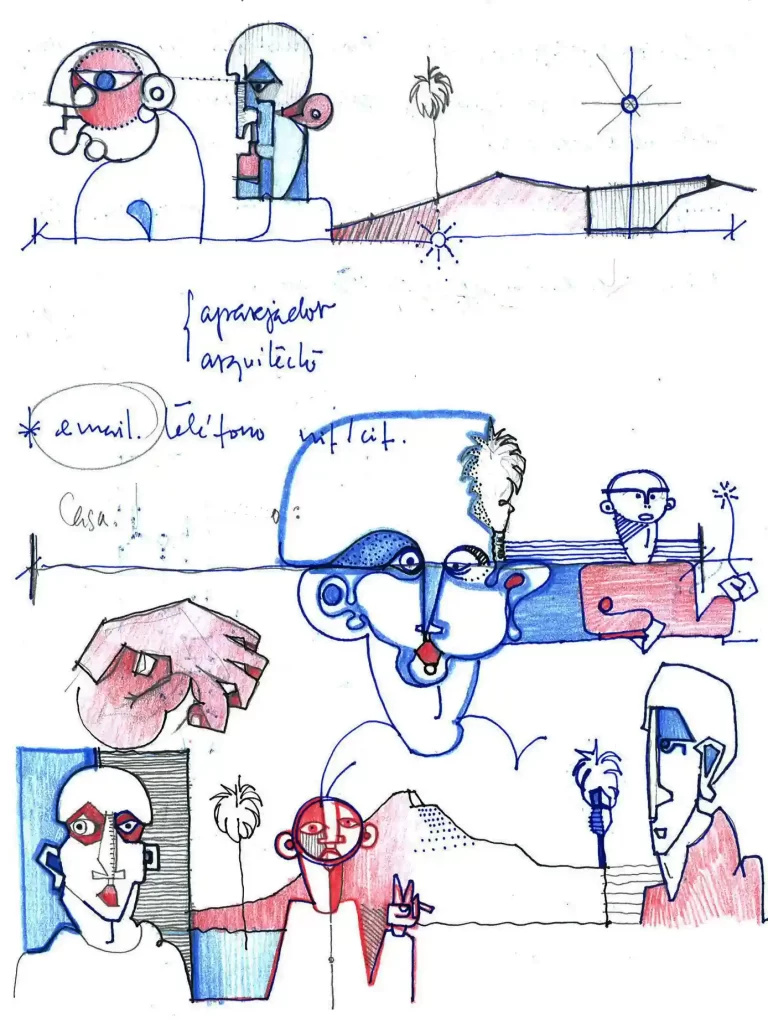 aparejador
arquitecto
* email. teléfono nif/cif.
Casa.